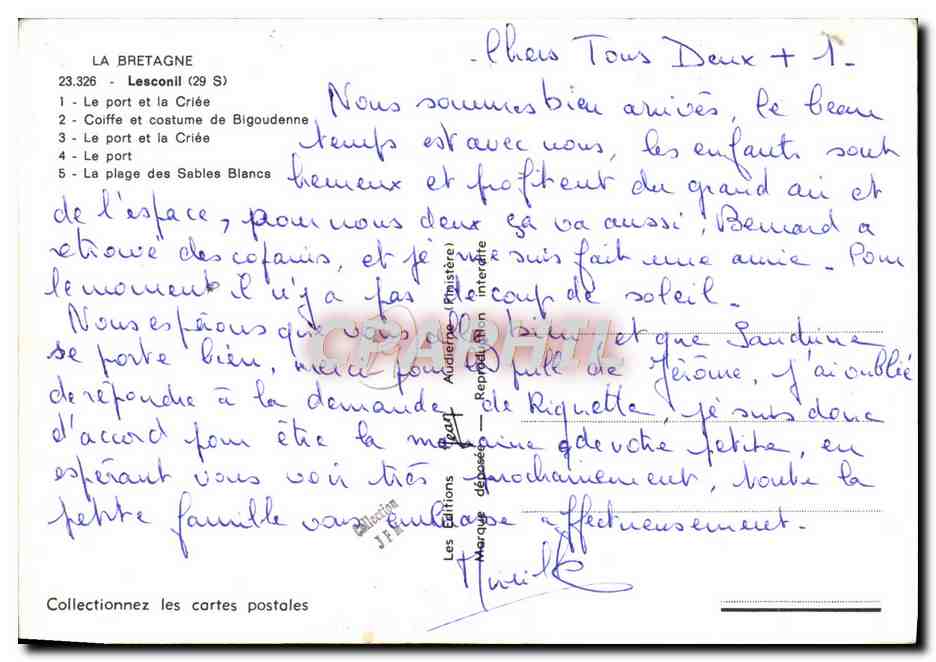 LA BRETAGNE
23.326 - Lesconil (29 S)
1 - Le port et la Criée
2 - Coiffe et costume de Bigoudenne
3 - Le port et la Criée
4 - Le port
5 - La plage des Sables Blancs
Chers Tous Deux + 1.
Nous sommes bien arrivés, le beau
temps est avec nous, les enfants sont
heureux et profitent du grand air et
de l'espace, pour nous deux ça va aussi, Bernard a
retrouvé des copains, et je me suis fait une amie. Pour
le moment il n'y a pas de coup de soleil.
Nous espérons que vous allez bien, et que Sandrine
se porte bien, merci pour le pull de Jérôme, j'ai oublié
de répondre à la demande de Riquette, je suis donc
d'accord pour être la marraine de votre petite, en
espérant vous voir très prochainement, toute la
petite famille vous embrasse affectueusement.
Les Editions Jean Audierne (Finistère)
Marque déposée — Reproduction interdite
Collection
JFM
CPARHIL
Collectionnez les cartes postales